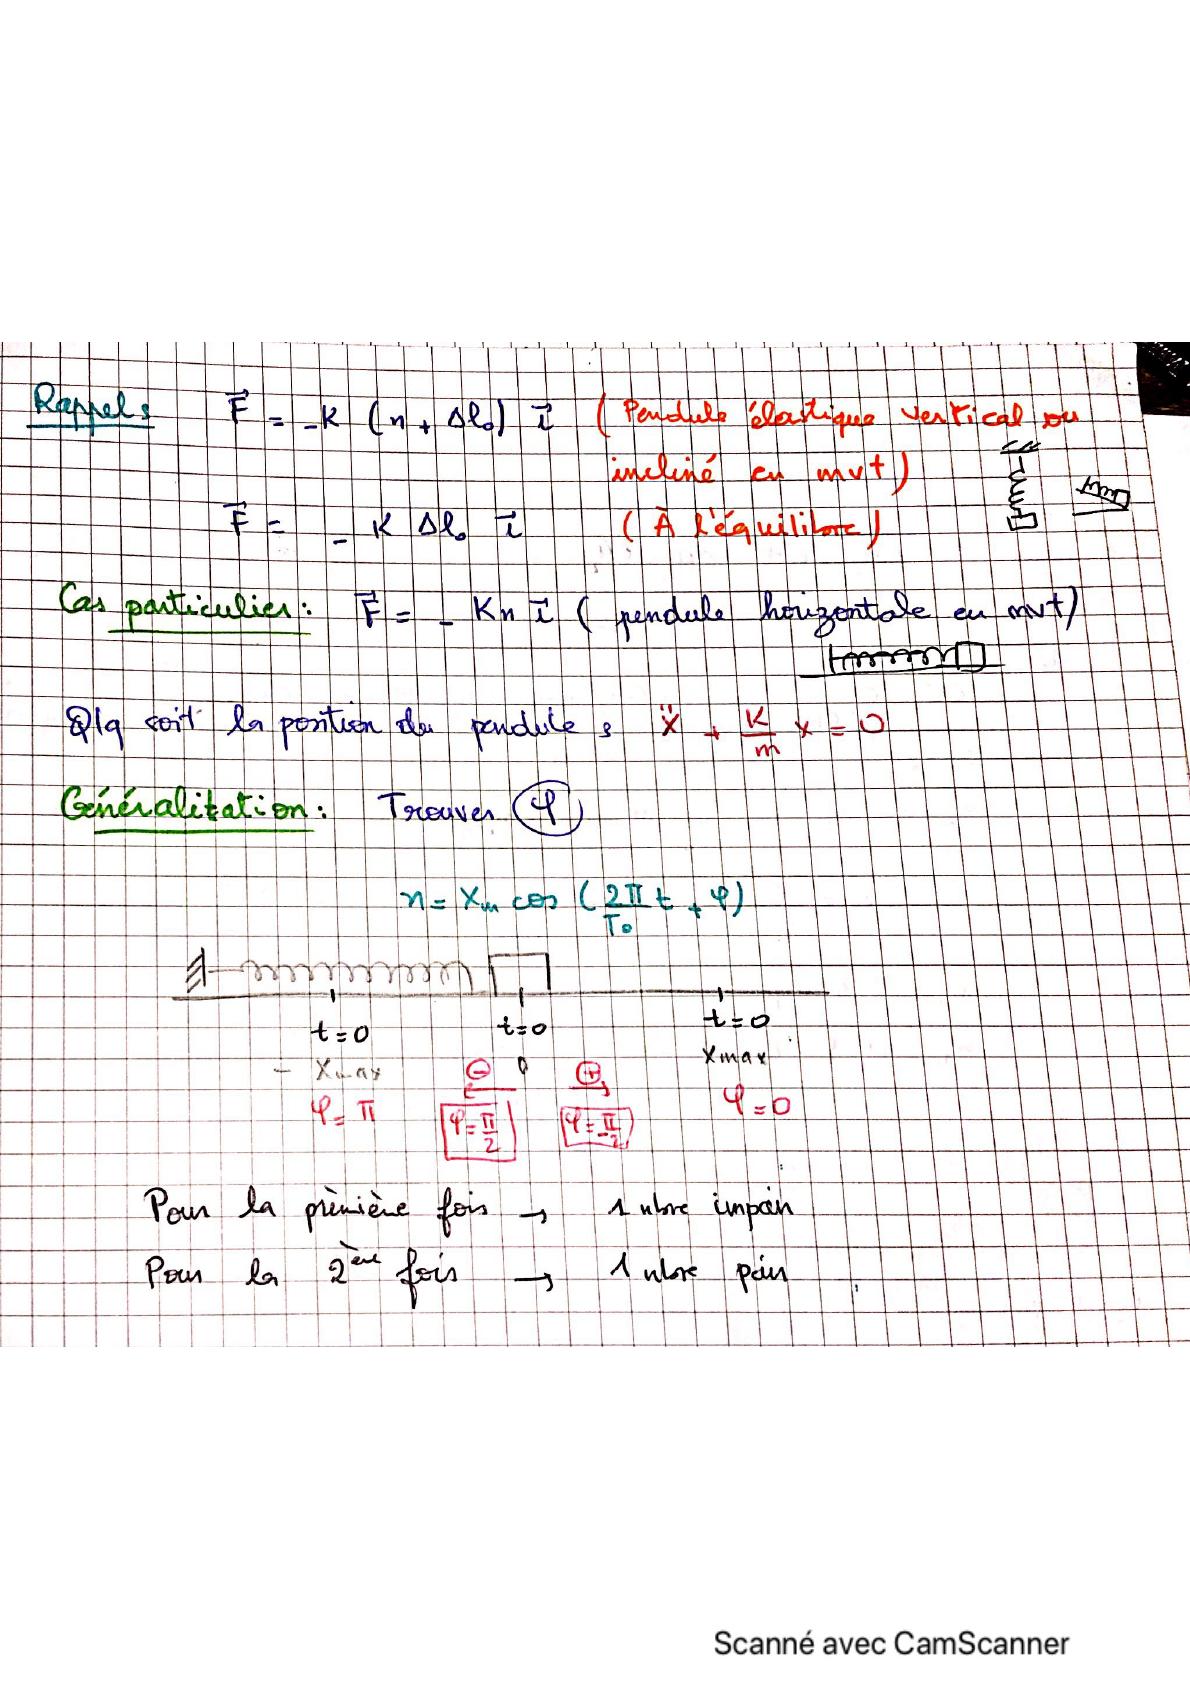 Rappels F = -K (x + Δl₀) i ( Pendule élastique vertical ou
incliné en mvt)
F = - K Δl₀ i ( À l'équilibre)
Cas particulier : F = - Kx i ( pendule horizontale en mvt)
Qlq soit la position du pendule : ẍ + K/m x = 0
Généralisation : Trouver φ
x = Xm cos ( 2π/T₀ t + φ)
t=0 t=0 t=0
- Xmax ⊖ 0 ⊕ Xmax
φ = π φ = π/2 φ = -π/2 φ = 0
Pour la prèmière fois → 1 nbre impair
Pour la 2ème fois → 1 nbre pair
Scanné avec CamScanner